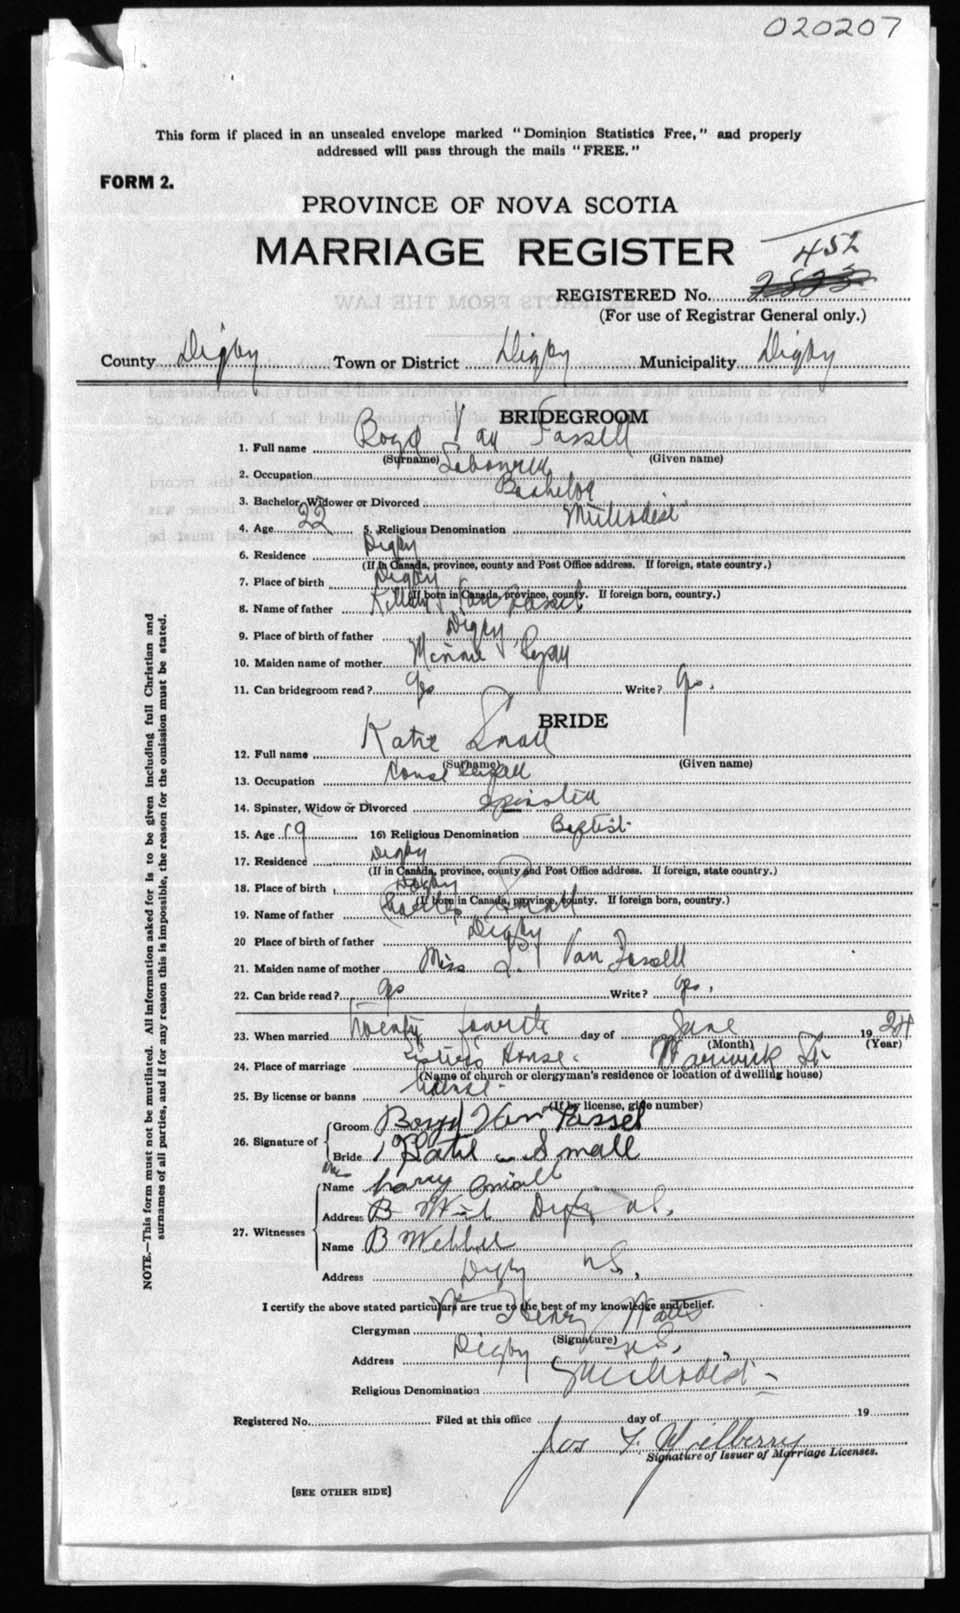 020207
This form if placed in an unsealed envelope marked "Dominion Statistics Free," and properly
addressed will pass through the mails "FREE."
FORM 2.
PROVINCE OF NOVA SCOTIA
MARRIAGE REGISTER
452
REGISTERED No. 2823
(For use of Registrar General only.)
County Digby Town or District Digby Municipality Digby
BRIDEGROOM
1. Full name Boyd Van Tassell
(Surname) (Given name)
2. Occupation Labourer
3. Bachelor, Widower or Divorced Bachelor
4. Age 22 5. Religious Denomination Methodist
6. Residence Digby
(If in Canada, province, county and Post Office address. If foreign, state country.)
7. Place of birth Digby
(If born in Canada, province, county. If foreign born, country.)
8. Name of father Van Tassel
9. Place of birth of father Digby
10. Maiden name of mother Minnie
11. Can bridegroom read? yes Write? yes.
BRIDE
12. Full name Katie Small
(Surname) (Given name)
13. Occupation
14. Spinster, Widow or Divorced Spinster
15. Age 19 16) Religious Denomination Baptist
17. Residence Digby
(If in Canada, province, county and Post Office address. If foreign, state country.)
18. Place of birth Digby
(If born in Canada, province, county. If foreign born, country.)
19. Name of father Charles Small
20 Place of birth of father Digby
21. Maiden name of mother Miss L. Van Tassell
22. Can bride read? yes Write? yes,
23. When married twenty fourth day of June 19 24
(Month) (Year)
24. Place of marriage Sisters House. Warwick St.
(Name of church or clergyman's residence or location of dwelling house)
25. By license or banns
(If by license, give number)
26. Signature of Groom Boyd Van Tassel
Bride Katie Small
27. Witnesses
Mrs
Name Harry
Address Digby N.S.
Name B Webber
Address Digby N.S.
I certify the above stated particulars are true to the best of my knowledge and belief.
Clergyman Wm Henry Watts
(Signature)
Address Digby N.S.
Religious Denomination Methodist
Registered No. Filed at this office day of 19
Jos F.
Signature of Issuer of Marriage Licenses.
[SEE OTHER SIDE]
NOTE.—This form must not be mutilated. All information asked for is to be given including full Christian and
surnames of all parties, and if for any reason this is impossible, the reason for the omission must be stated.